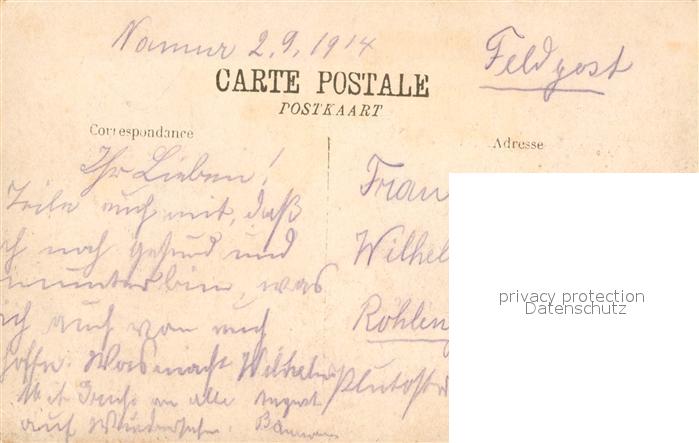 Namur 2.9.1914
Feldpost
CARTE POSTALE
POSTKAART
Correspondance
Adresse
Ihr Lieben!
Teile euch mit, daß
ich noch gesund und
munter bin, was
ich auch von euch
hoffe. Was macht Wilhelm
Mit Gruß an alle August
auf Wiedersehn.
Frau
Wilhel
Röhling
privacy protection
Datenschutz